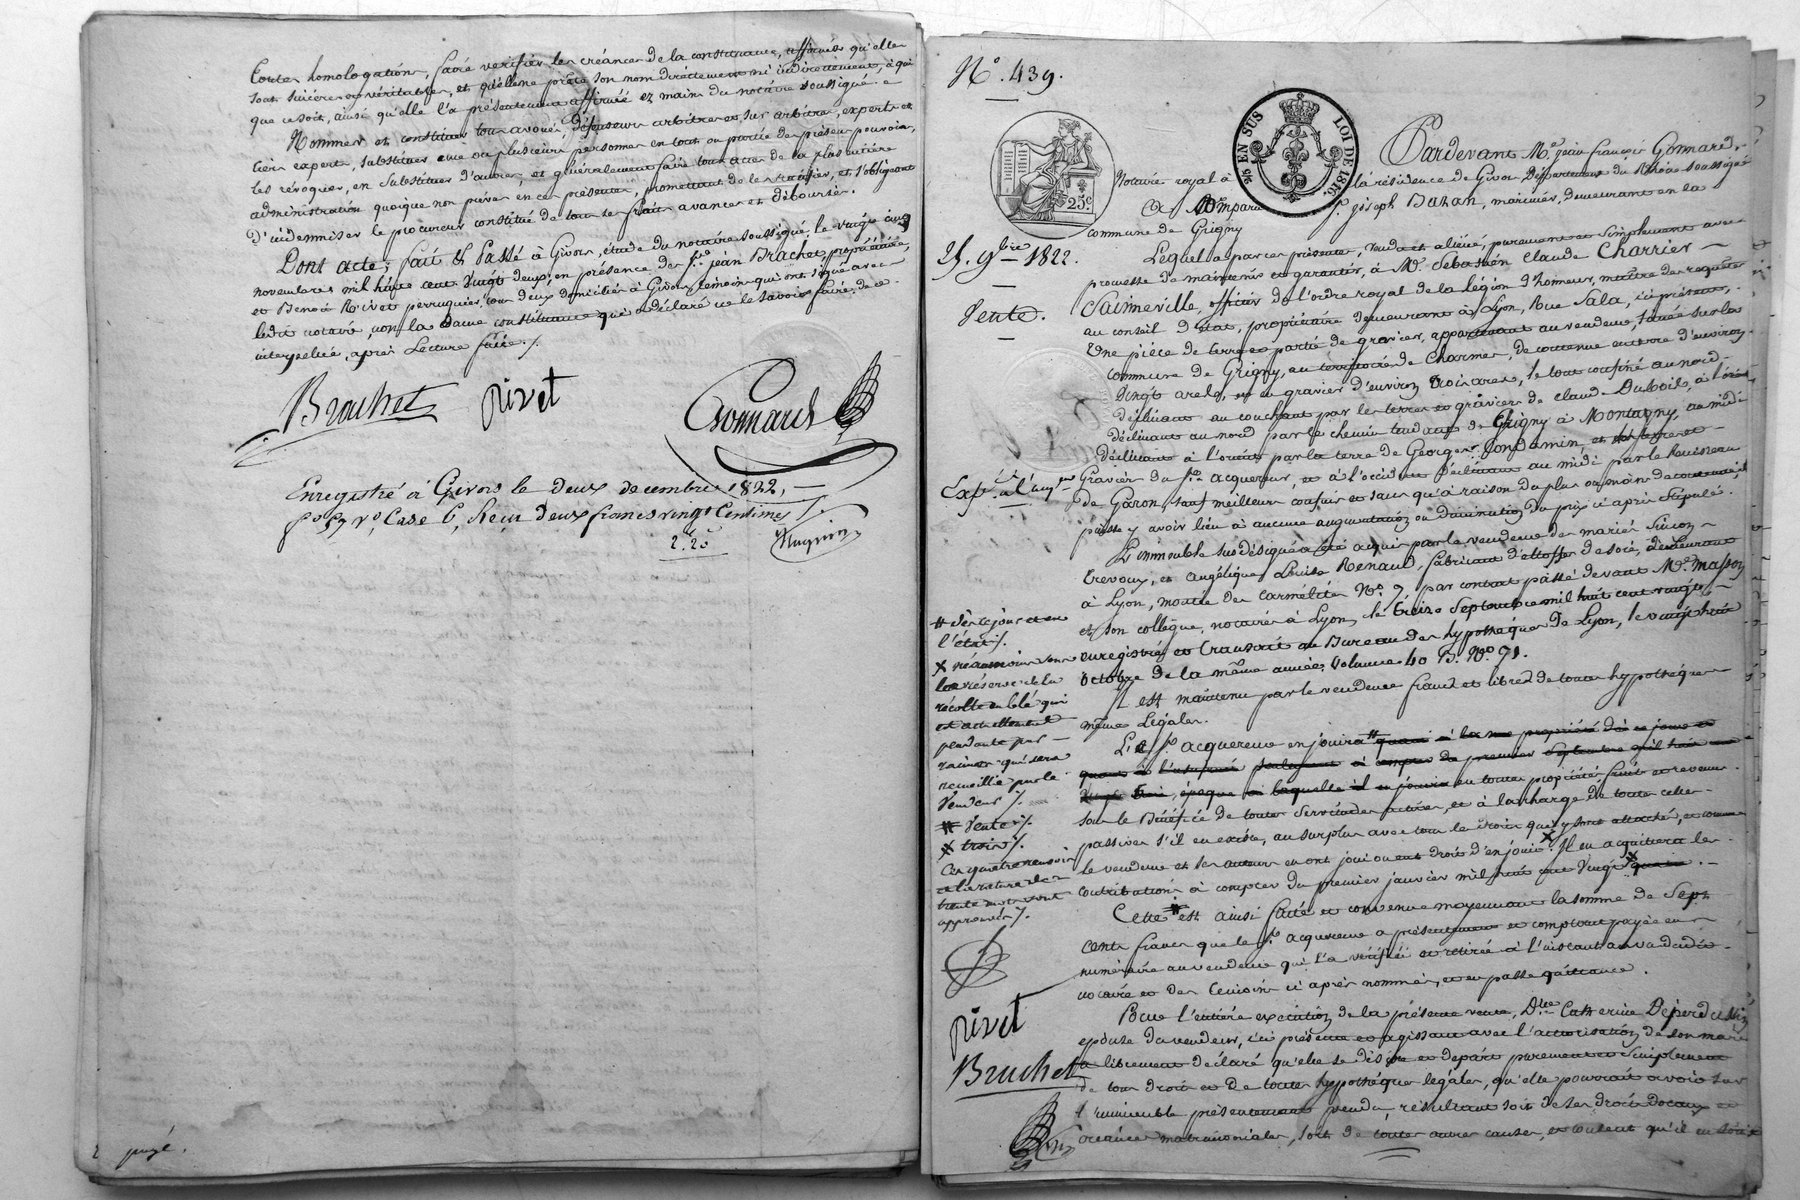 toutes homologations, faire vérifier les créances de la constituante, affirmer qu'elles
sont sincères et véritables, et qu'elle ne prête son nom directement ni indirectement, à qui
que ce soit, ainsi qu'elle l'a présentement affirmé ez mains du notaire soussigné.
Nommer et constituer tous avoués, défenseurs arbitres et sur arbitres, experts et
tiers experts, substituer une ou plusieurs personnes en tout ou partie des présens pouvoirs,
les révoquer, en substituer d'autres, et généralement faire tous actes de la plus entière
administration quoique non prévus en ces présentes, promettant de les ratifier, et s'obligeant
d'indemniser le procureur constitué de tous ses frais avances et déboursés.
Dont acte; fait & Passé à Givors, étude du notaire soussigné, le vingt cinq
novembre mil huit cent vingt deux; en présence des srs. jean Brachet propriétaire,
et Benoit Rivet perruquier, tous deux domiciliés à Givors, témoins qui ont signé avec
ledit notaire, non la dame constituante qui a déclaré ne le savoir faire, de ce
interpellée, après Lecture faite ./.
Brachet rivet Gonnard
Enregistré à Givors le deux decembre 1822,
fo. 57 vo. Case 6, Reçu deux francs vingt Centimes
2.20
2 pagé.
No. 439.
25c
25 EN SUS LOI DE 1816.
Pardevant Me. jean françois Gonnard,
Notaire royal à la résidence de Givors Département du Rhône soussigné
A Comparu sr. joseph Bazan, marinier, demeurant en la
commune de Grigny
25. 9bre 1822.
Lequel a par ces présentes, vendu et aliéné, purement et simplement avec
promesse de maintenir et garantir, à Mr. Sebastien Claude Charrier
Vente.
Sainneville, officier de l'ordre royal de la légion d'honneur, maître des requêtes
au conseil d'état, propriétaire demeurant à Lyon, Rue Sala, ici présent,
Une pièce de terre et partie de gravier, appartenant au vendeur, située sur la
commune de Grigny, au territoire de Charmes, de contenue en terre d'environ
vingt ares, et en gravier d'environ trois ares, le tout confiné au nord
déclinant au couchant par les terres et graviers de claude Dubois, à l'orient
déclinant au nord par le chemin tendant de Grigny à Montagny, au midi
déclinant à l'orient par la terre de Georges Condamin, et les terre et
Expée à l'acqur
Gravier du sr. acquéreur, et à l'occident déclinant au midi par le Ruisseau
de Garon, sauf meilleurs confins et sans qu'à raison du plus ou moins de contenue, il
puisse y avoir lieu à aucune augmentation ou diminution du prix ci après stipulé.
L'immeuble sus désigné a été acquis par le vendeur des mariés Simon
Trevoux, et angélique Louise Renaud, fabricant d'étoffes de soie, demeurant
à Lyon, montée des Carmélites No. 7, par contrat passé devant Me. Masson
et son collègue, notaires à Lyon, le treize Septembre mil huit cent vingt
enregistré et transcrit au Bureau des hypothèques de Lyon, le vingt huit
octobre de la même année, Volume 40 B. No. 71.
Il est maintenu par le vendeur franc et libre de toutes hypothèques
même Légales.
# dès ce jour et en
l'état ./.
x néanmoins sous
la réserve de la
récolte en blé qui
est actuellement
pendante par
racines qui sera
recueillie par le
Vendeur ./.
# Vente ./.
x trois ./.
Ces quatre renvois
et la rature de
trente mots sont
approuvés ./.
Le sr. acquéreur en jouira # quant à la nue propriété dès ce jour et
quant à l'usufruit seulement à compter du premier septembre mil huit cent
vingt trois, époque à laquelle il en jouira en toute propriété fruits et revenus
sous le Bénéfice de toutes servitudes actives, et à la charge de toutes celles
passives s'il en existe, au surplus avec tous les droits qui y sont attachés, et comme
le vendeur et ses auteurs en ont joui ou eut droit d'en jouir x. Il en acquittera les
contributions à compter du premier janvier mil huit cent vingt x quatre.
Cette # est ainsi faite et convenue moyennant la somme de Sept
cents francs que le sr. acquéreur a présentement et comptant payée en
numéraire au vendeur qui l'a vérifiée et retirée à l'instant au vu dudit
notaire et des témoins ci après nommés, et en passe quittance.
Pour l'entière exécution de la présente vente, Dlle Catherine Deperdussin
épouse du vendeur, ici présente et agissant avec l'autorisation de son mari
a librement déclaré qu'elle se désiste et départ purement et simplement
de tous droits et de toutes hypothèques légales, qu'elle pourrait avoir sur
l'immeuble présentement vendu, résultant soit de ses droits dotaux et
créances matrimoniales, soit de toutes autres causes, et consent qu'il en soit
rivet
Brachet